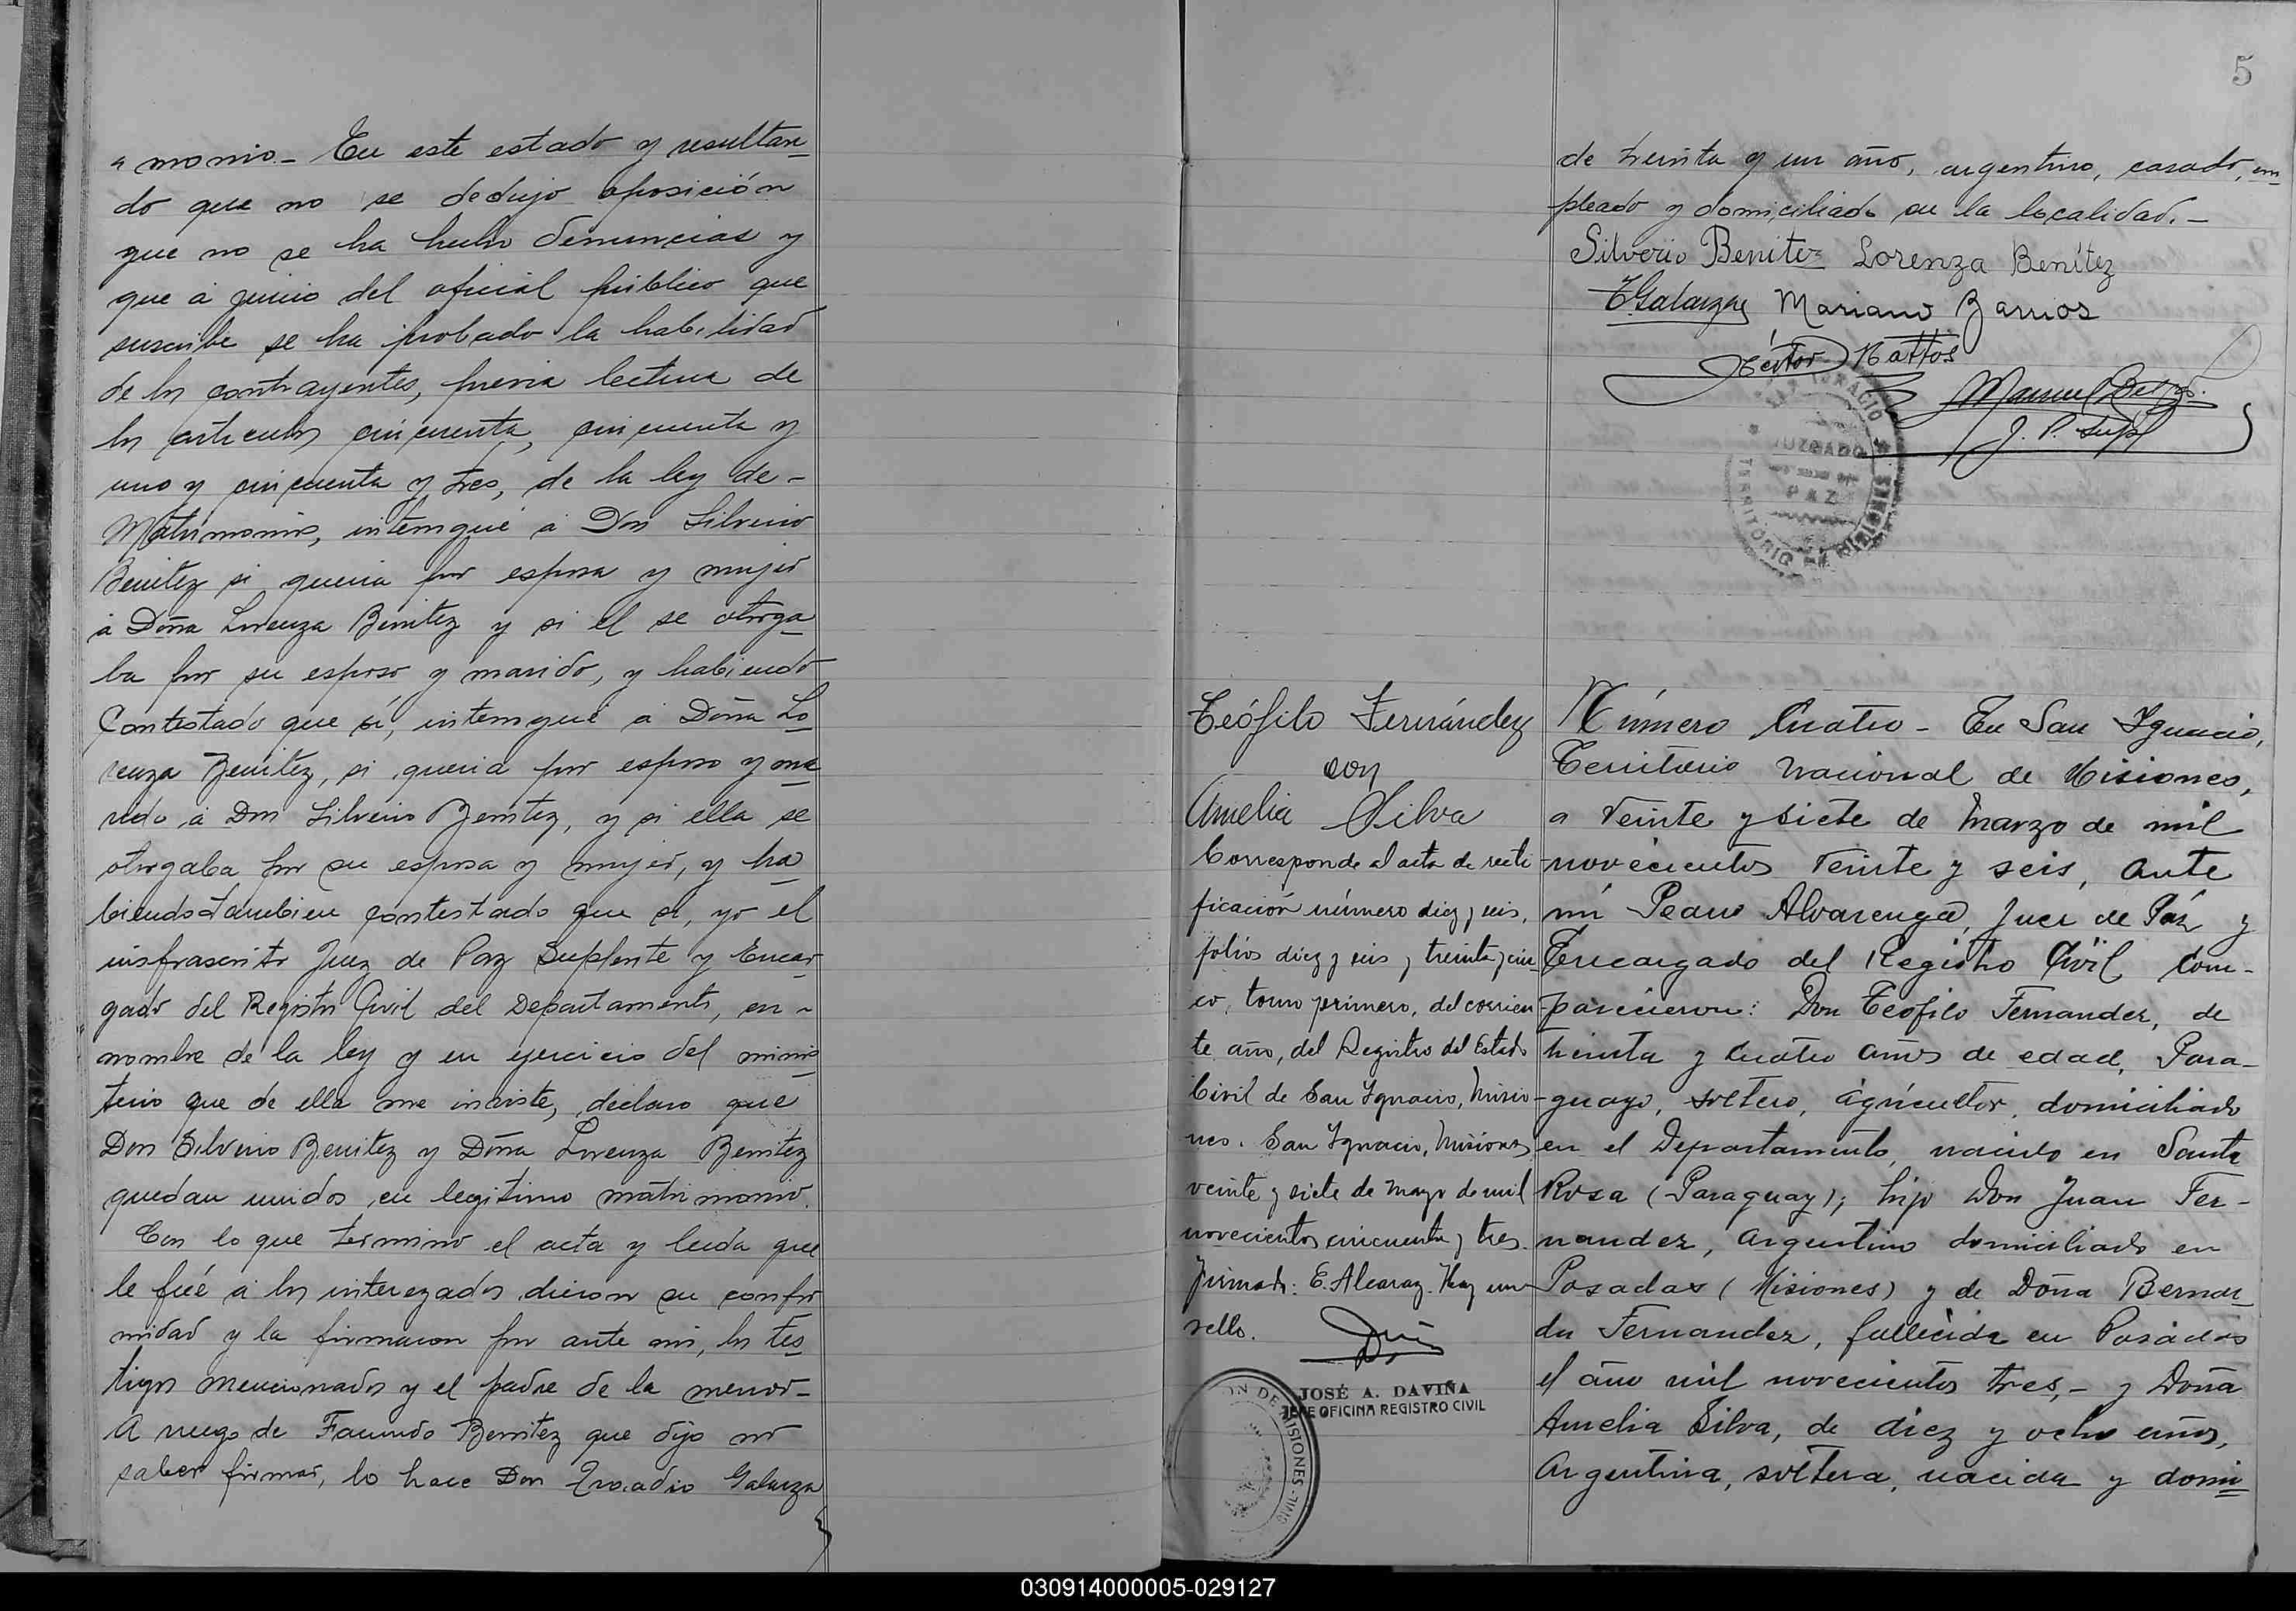 monio.- En este estado y resultan
do que no se dedujo oposición
que no se ha hecho denuncias y
que á juicio del oficial público que
suscribe se ha probado la habilidad
de los contrayentes, previa lectura de
los articulos cincuenta, cincuenta y
uno y cincuenta y tres, de la ley de-
Matrimonio, interrogué á Don Silverio
Benitez si queria por esposa y mujer
á Doña Lorenza Benitez y si el se otorga
ba por su esposo y marido, y habiendo
Contestado que sí, interrogué á Doña Lo
renza Benitez, si queria por esposo y ma
rido á Don Silverio Benitez, y si ella se
otorgaba por su esposa y mujer, y ha
biendo tambien contestado que si, yo el
infrascrito Juez de Paz Suplente y Encar
gado del Registro Civil del Departamento, en-
nombre de la ley y en ejercicio del minis
terio que de ella me inviste, declaro que
Don Silverio Benitez y Doña Lorenza Benitez
quedan unidos en legitimo matrimonio.
Con lo que terminó el acta y leida que
le fué á los interezados dieron su confor
midad y la firmaron por ante mi, los tes
tigos mencionados y el padre de la menor-
A ruego de Facundo Benitez que dijo no
saber firmar, lo hace Don Galarza
5
de treinta y un año, argentino, casado, em
pleado y domiciliado en la localidad.-
Silverio Benitez Lorenza Benítez
Galarza Mariano Barrios
Héctor Mattos
Manuel
J. P. Supl
SAN IGNACIO
JUZGADO
PAZ
TERRITORIO DE MISIONES
Teófilo Fernández
con
Amelia Silva
Corresponde al acta de recti
ficación número diez y seis,
folios diez y seis y treinta y cin
co, tomo primero, del corrien
te año, del Registro del Estado
Civil de San Ignacio, Misio
nes. San Ignacio, Misiones
veinte y siete de Mayo de mil
novecientos cincuenta y tres.
Firmado: E. Alcaraz. Hay un
sello.
JOSÉ A. DAVIÑA
JEFE OFICINA REGISTRO CIVIL
DE MISIONES
Número Cuatro - En San Ignacio,
Territorio Nacional de Misiones,
a Veinte y siete de Marzo de mil
novecientos Veinte y seis, ante
mí Pedro Alvarenga, Juez de Páz y
Encargado del Registro Civil Com-
parecieron: Don Teofilo Fernandez, de
treinta y cuatro años de edad, Para-
guayo, soltero, agricultor, domiciliado
en el Departamento, nacido en Santa
Rosa (Paraguay); hijo Don Juan Fer-
nandez, argentino domiciliado en
Posadas (Misiones) y de Doña Bernar
da Fernandez, fallecida en Posadas
el año mil novecientos tres,- y Doña
Amelia Silva, de diez y ocho años,
Argentina, soltera, nacida y domi
030914000005-029127